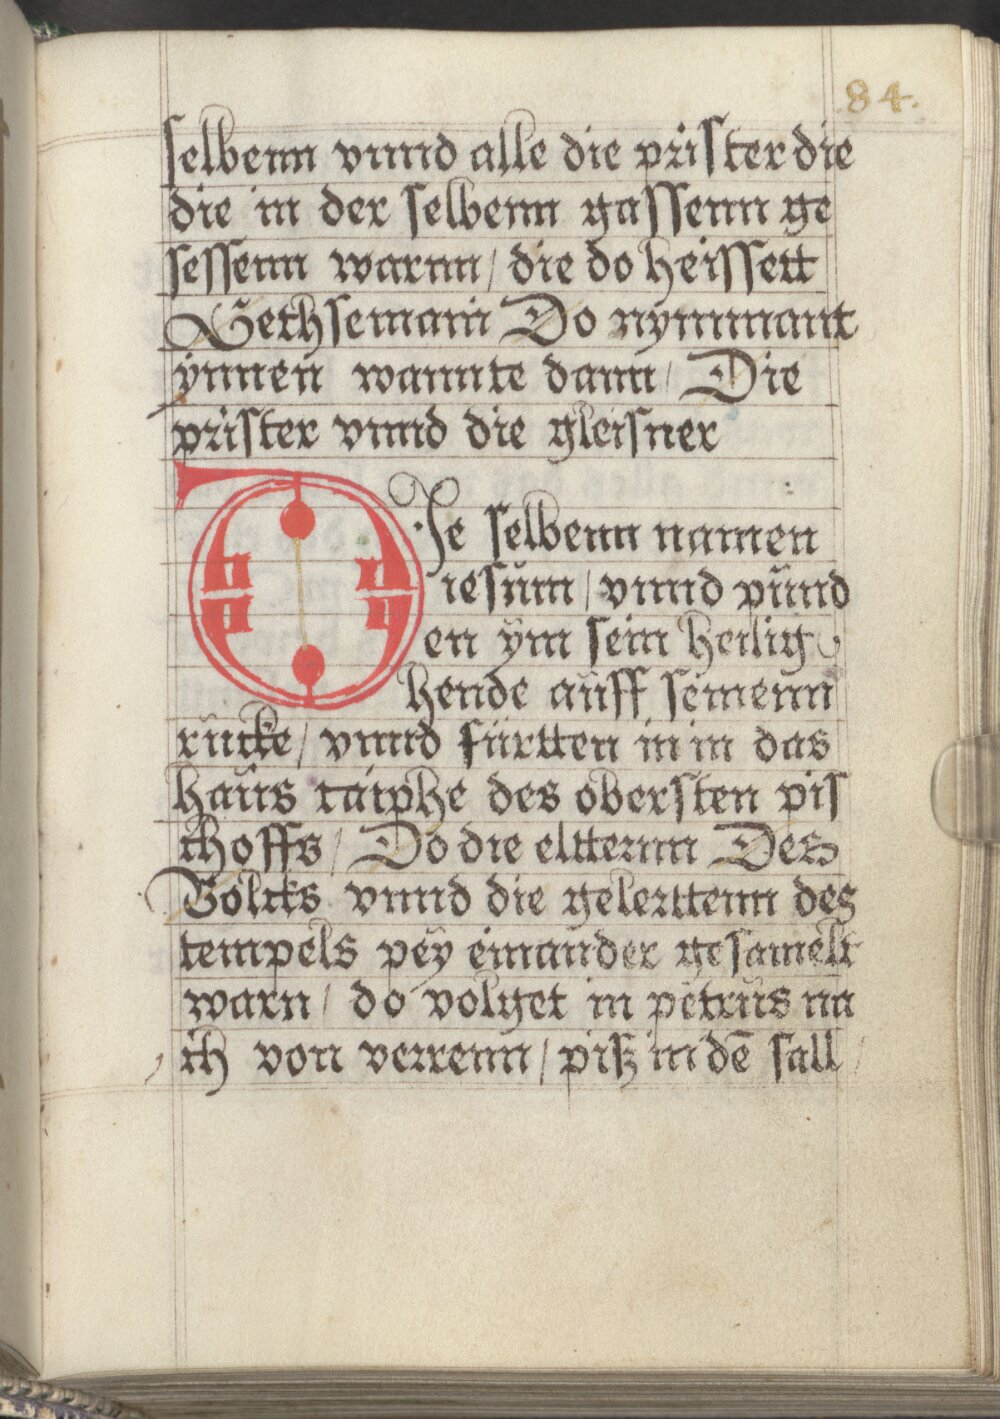 84.
selbenn vnnd alle die prister die
die in der selbenn gassenn ge
sessenn warnn / die do heissett
Gethsemani Do nymmant
ÿnnen wannte dann / Die
prister vnnd die gleisner
DJe selbenn namen
iesűm / vnnd pűnd
en ÿm sein heilig
hende aűff seinenn
rűcke / vnnd fűrtten in in das
haűs caiphe des obersten pis
choffs / Do die eltternn Des
Volcks vnnd die gelerttenn des
tempels peÿ einander gesamelt
warn / do volget in petrűs na
ch von verrenn / pisz in dē sall /